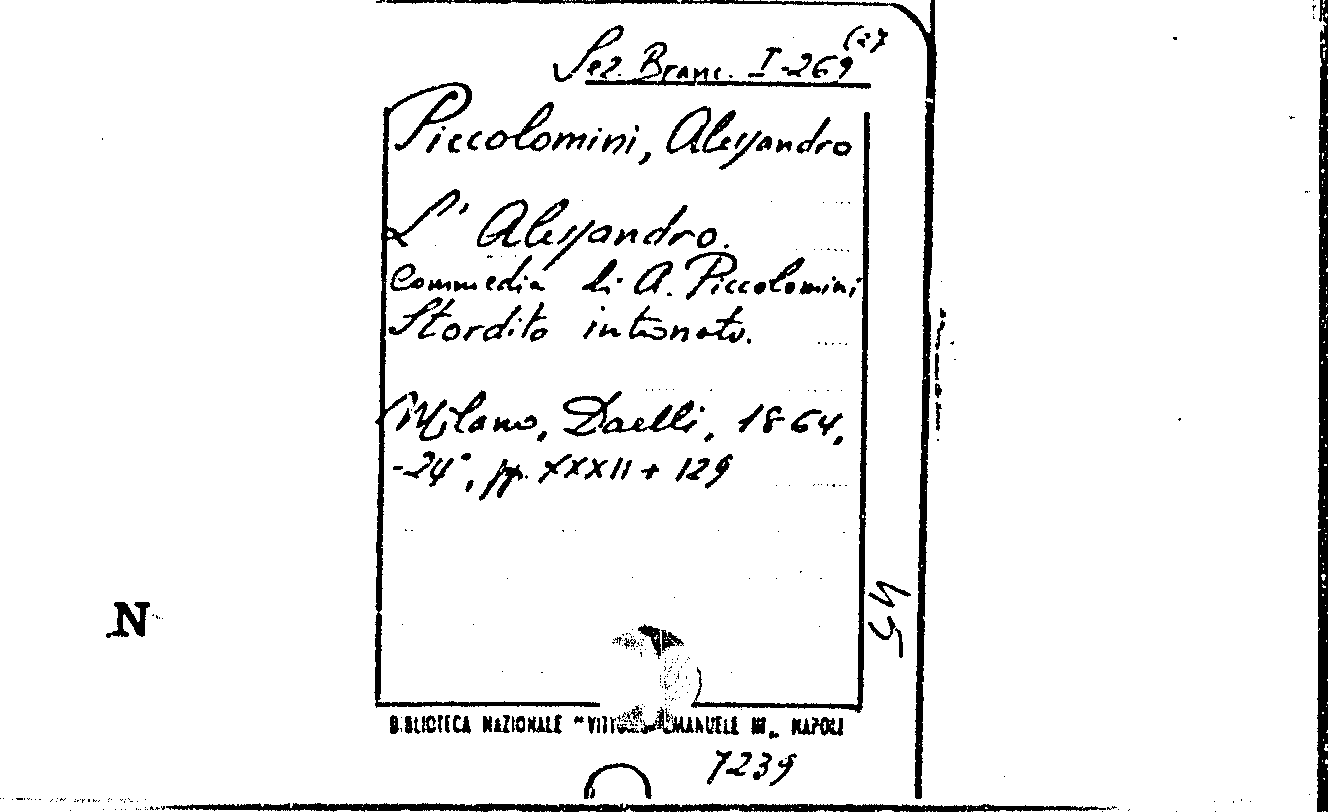 Sez. Branc. I-269 (27
Piccolomini, Alessandro
L' Alessandro.
Commedia di A. Piccolomini
Stordito intronato.
Milano, Daelli, 1864,
-24°, pp. XXXII + 129
N
54
BIBLIOTECA NAZIONALE "VITTORIO EMANUELE III„ NAPOLI
7239